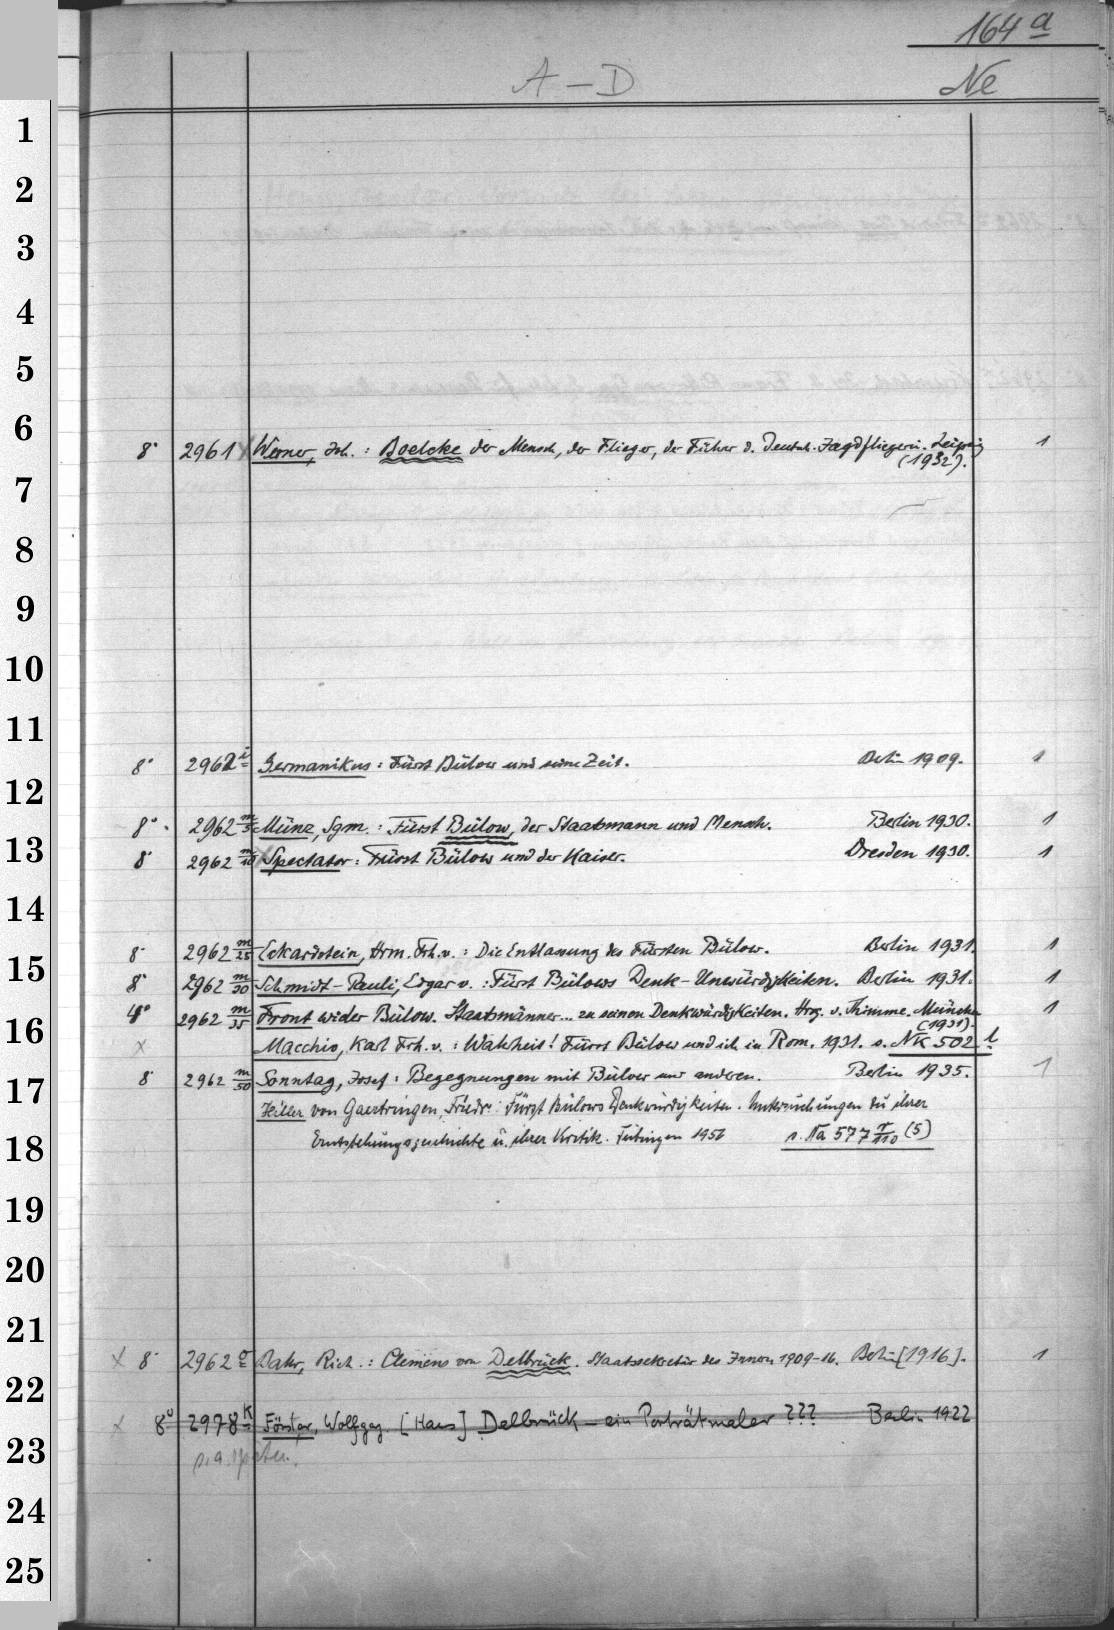 164 a
A – D
Ne
1
2
3
4
5
6
8° 2961 Werner, Joh. : Boelcke der Mensch, der Flieger, der Führer d. Deutsch. Jagdfliegerei. Leipzig 1
(1932).
7
8
9
10
11
8° 2962 i Germanikus : Fürst Bülow und seine Zeit. Berlin 1909. 1
12
8° 2962 m/5 Münz, Sgm. : Fürst Bülow, der Staatsmann und Mensch. Berlin 1930. 1
13
8° 2962 m/10 Spectator : Fürst Bülow und der Kaiser. Dresden 1930. 1
14
8° 2962 m/25 Eckardstein, Hrm. Frh. v. : Die Entlassung des Fürsten Bülow. Berlin 1931. 1
15
8° 2962 m/30 Schmidt-Pauli, Edgar v. : Fürst Bülows Denk-Unwürdigkeiten. Berlin 1931. 1
4° 2962 m/35 Front wider Bülow. Staatsmänner... zu seinen Denkwürdigkeiten. Hrg. v. Thimme. München 1
16
(1931).
x Macchio, Karl Frh. v. : Wahrheit! Fürst Bülow und ich in Rom. 1931. s. NK 502 l
8° 2962 m/50 Sonntag, Josef : Begegnungen mit Bülow und anderen. Berlin 1935. 1
17
Hiller von Gaertringen, Friedr. : Fürst Bülows Denkwürdigkeiten. Untersuchungen zu ihrer
Entstehungsgeschichte u. ihrer Kritik. Tübingen 1956 s. Na 577 r/110 (5)
18
19
20
21
x 8° 2962 o Bahr, Rich. : Clemens von Delbrück. Staatssekretär des Innern 1909-16. Berlin [1916]. 1
22
x 8° 2978 k Förster, Wolfgg. [Hans] Delbrück – ein Porträtmaler ??? Berlin 1922
23
24
25